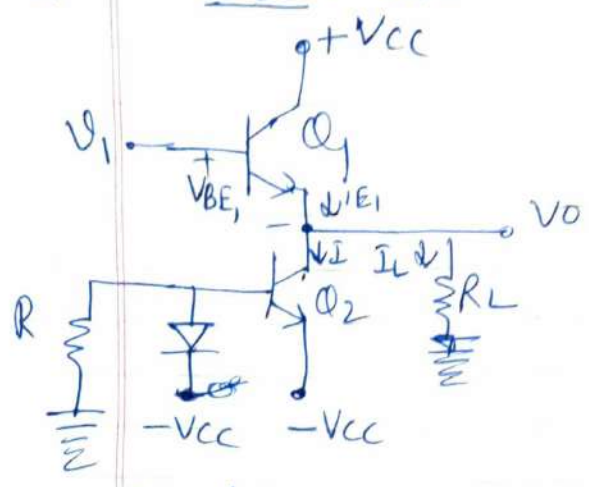 +VCC
υ1 Q1
VBE1 + - ↓iE1
VO
↓I IL↓
R Q2 RL
-VCC -VCC